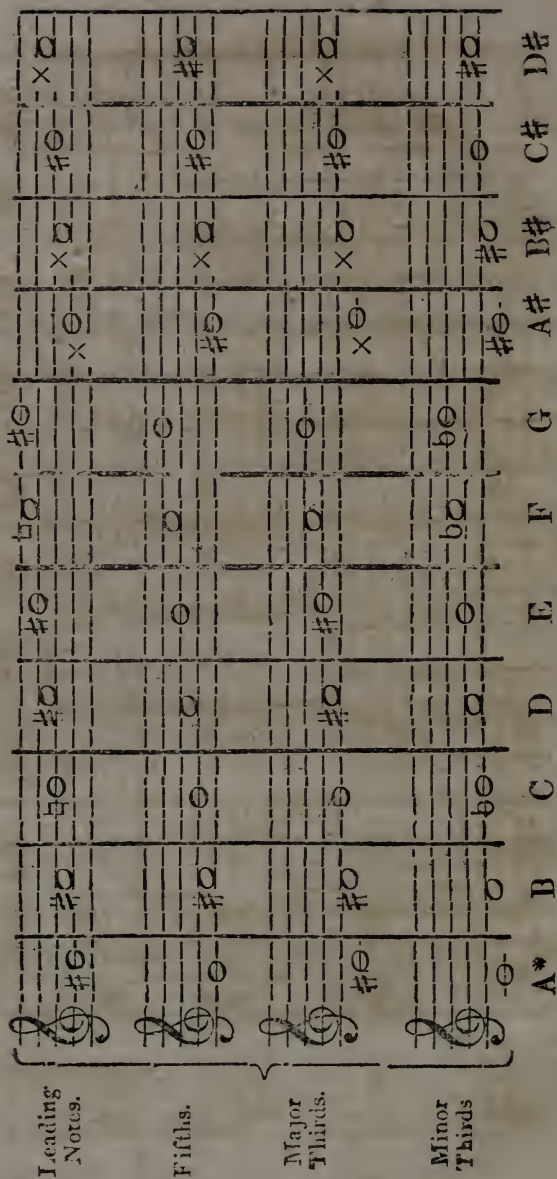 Leading
Notes.
Fifths.
Major
Thirds.
Minor
Thirds
A* B C D E F G A# B# C# D#